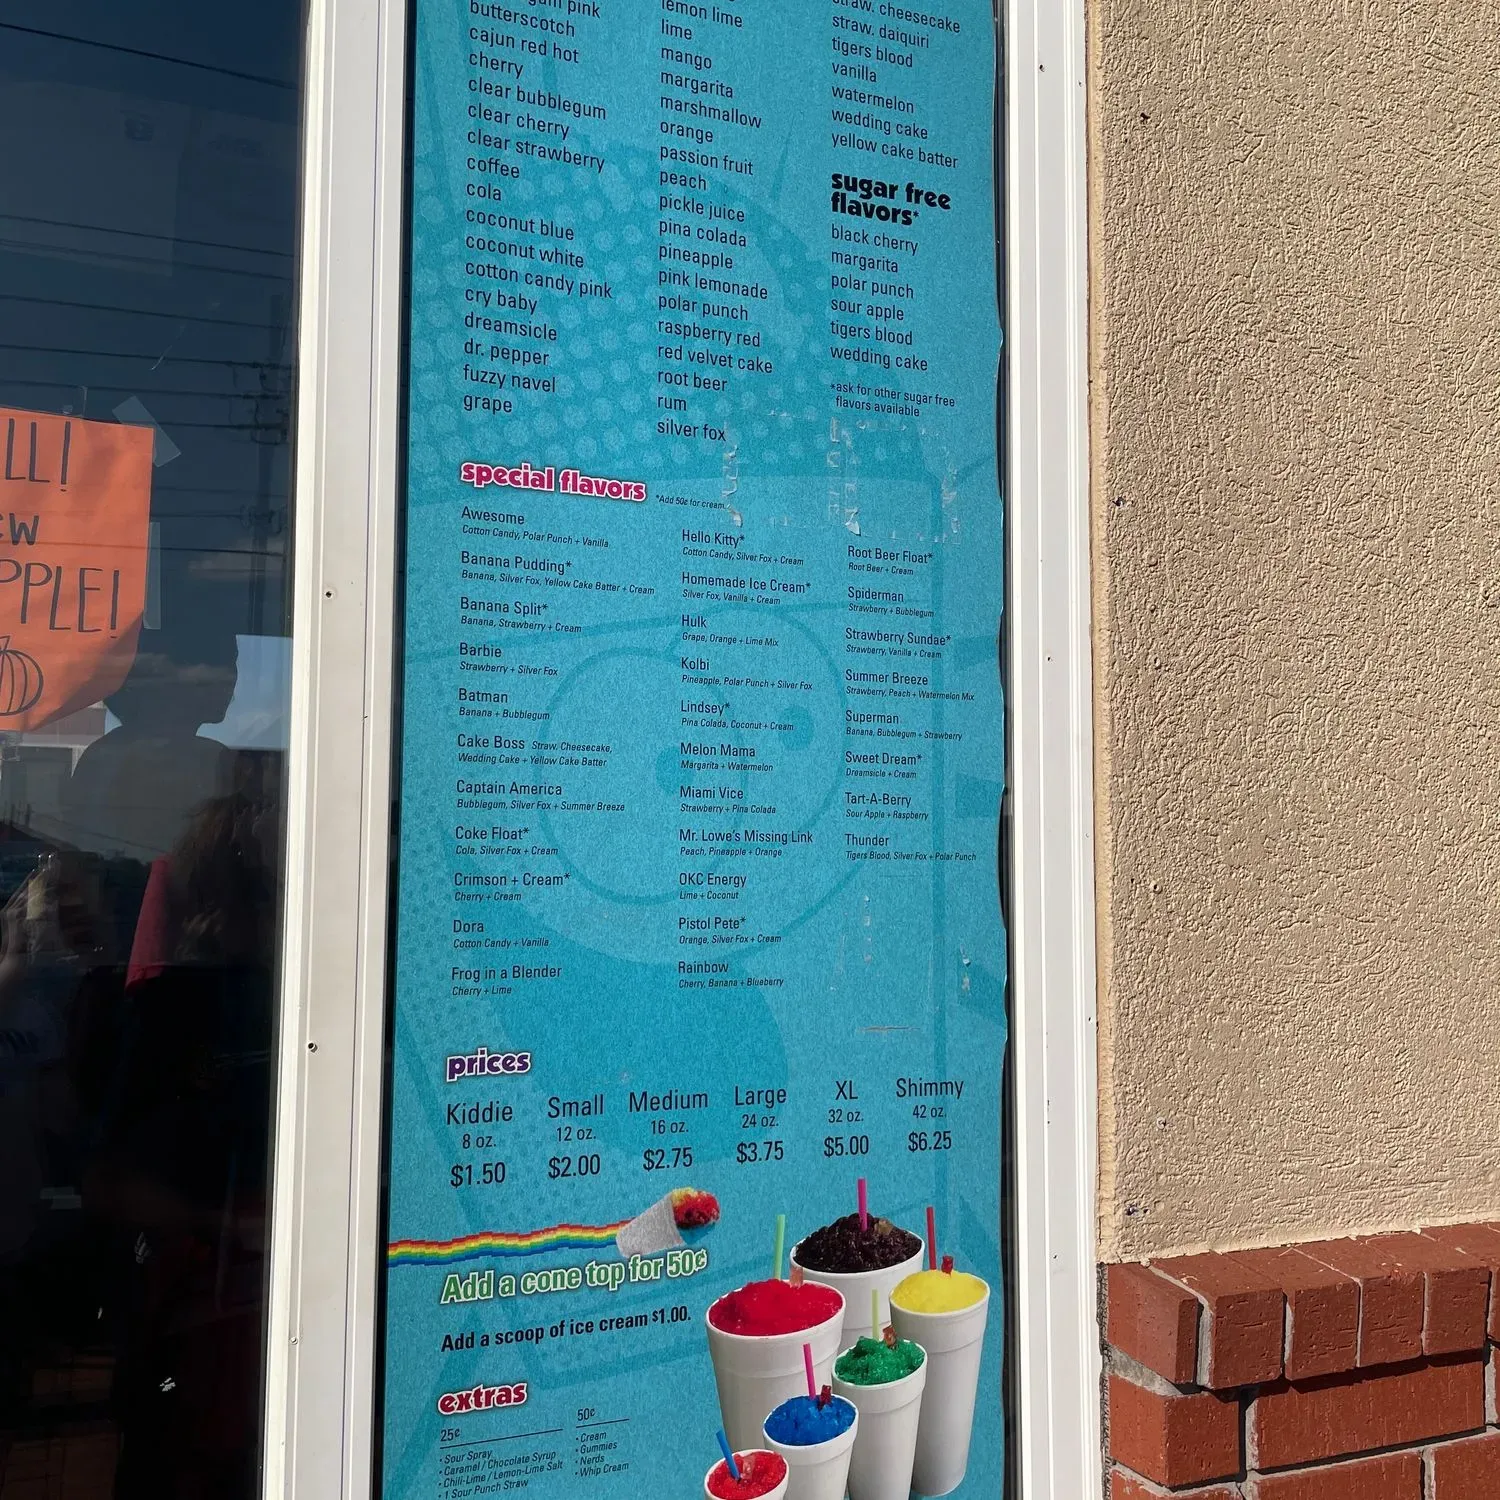 LL!
PPLE!
pink
butterscotch
cajun red hot
cherry
clear bubblegum
clear cherry
clear strawberry
coffee
cola
coconut blue
coconut white
cotton candy pink
cry baby
dreamsicle
dr. pepper
fuzzy navel
grape
lemon lime
lime
mango
margarita
marshmallow
orange
passion fruit
peach
pickle juice
pina colada
pineapple
pink lemonade
polar punch
raspberry red
red velvet cake
root beer
rum
silver fox
straw. cheesecake
straw. daiquiri
tigers blood
vanilla
watermelon
wedding cake
yellow cake batter
sugar free
flavors*
black cherry
margarita
polar punch
sour apple
tigers blood
wedding cake
*ask for other sugar free
flavors available
special flavors *Add 50¢ for cream.
Awesome
Cotton Candy, Polar Punch + Vanilla
Banana Pudding*
Banana, Silver Fox, Yellow Cake Batter + Cream
Banana Split*
Banana, Strawberry + Cream
Barbie
Strawberry + Silver Fox
Batman
Banana + Bubblegum
Cake Boss Straw. Cheesecake,
Wedding Cake + Yellow Cake Batter
Captain America
Bubblegum, Silver Fox + Summer Breeze
Coke Float*
Cola, Silver Fox + Cream
Crimson + Cream*
Cherry + Cream
Dora
Cotton Candy + Vanilla
Frog in a Blender
Cherry + Lime
Hello Kitty*
Cotton Candy, Silver Fox + Cream
Homemade Ice Cream*
Silver Fox, Vanilla + Cream
Hulk
Grape, Orange + Lime Mix
Kolbi
Pineapple, Polar Punch + Silver Fox
Lindsey*
Pina Colada, Coconut + Cream
Melon Mama
Margarita + Watermelon
Miami Vice
Strawberry + Pina Colada
Mr. Lowe's Missing Link
Peach, Pineapple + Orange
OKC Energy
Lime + Coconut
Pistol Pete*
Orange, Silver Fox + Cream
Rainbow
Cherry, Banana + Blueberry
Root Beer Float*
Root Beer + Cream
Spiderman
Strawberry + Bubblegum
Strawberry Sundae*
Strawberry, Vanilla + Cream
Summer Breeze
Strawberry, Peach + Watermelon Mix
Superman
Banana, Bubblegum + Strawberry
Sweet Dream*
Dreamsicle + Cream
Tart-A-Berry
Sour Apple + Raspberry
Thunder
Tigers Blood, Silver Fox + Polar Punch
prices
Kiddie Small Medium Large XL Shimmy
8 oz. 12 oz. 16 oz. 24 oz. 32 oz. 42 oz.
$1.50 $2.00 $2.75 $3.75 $5.00 $6.25
Add a cone top for 50¢
Add a scoop of ice cream $1.00.
extras
25¢
• Sour Spray
• Caramel / Chocolate Syrup
• Chili-Lime / Lemon-Lime Salt
• 1 Sour Punch Straw
50¢
• Cream
• Gummies
• Nerds
• Whip Cream